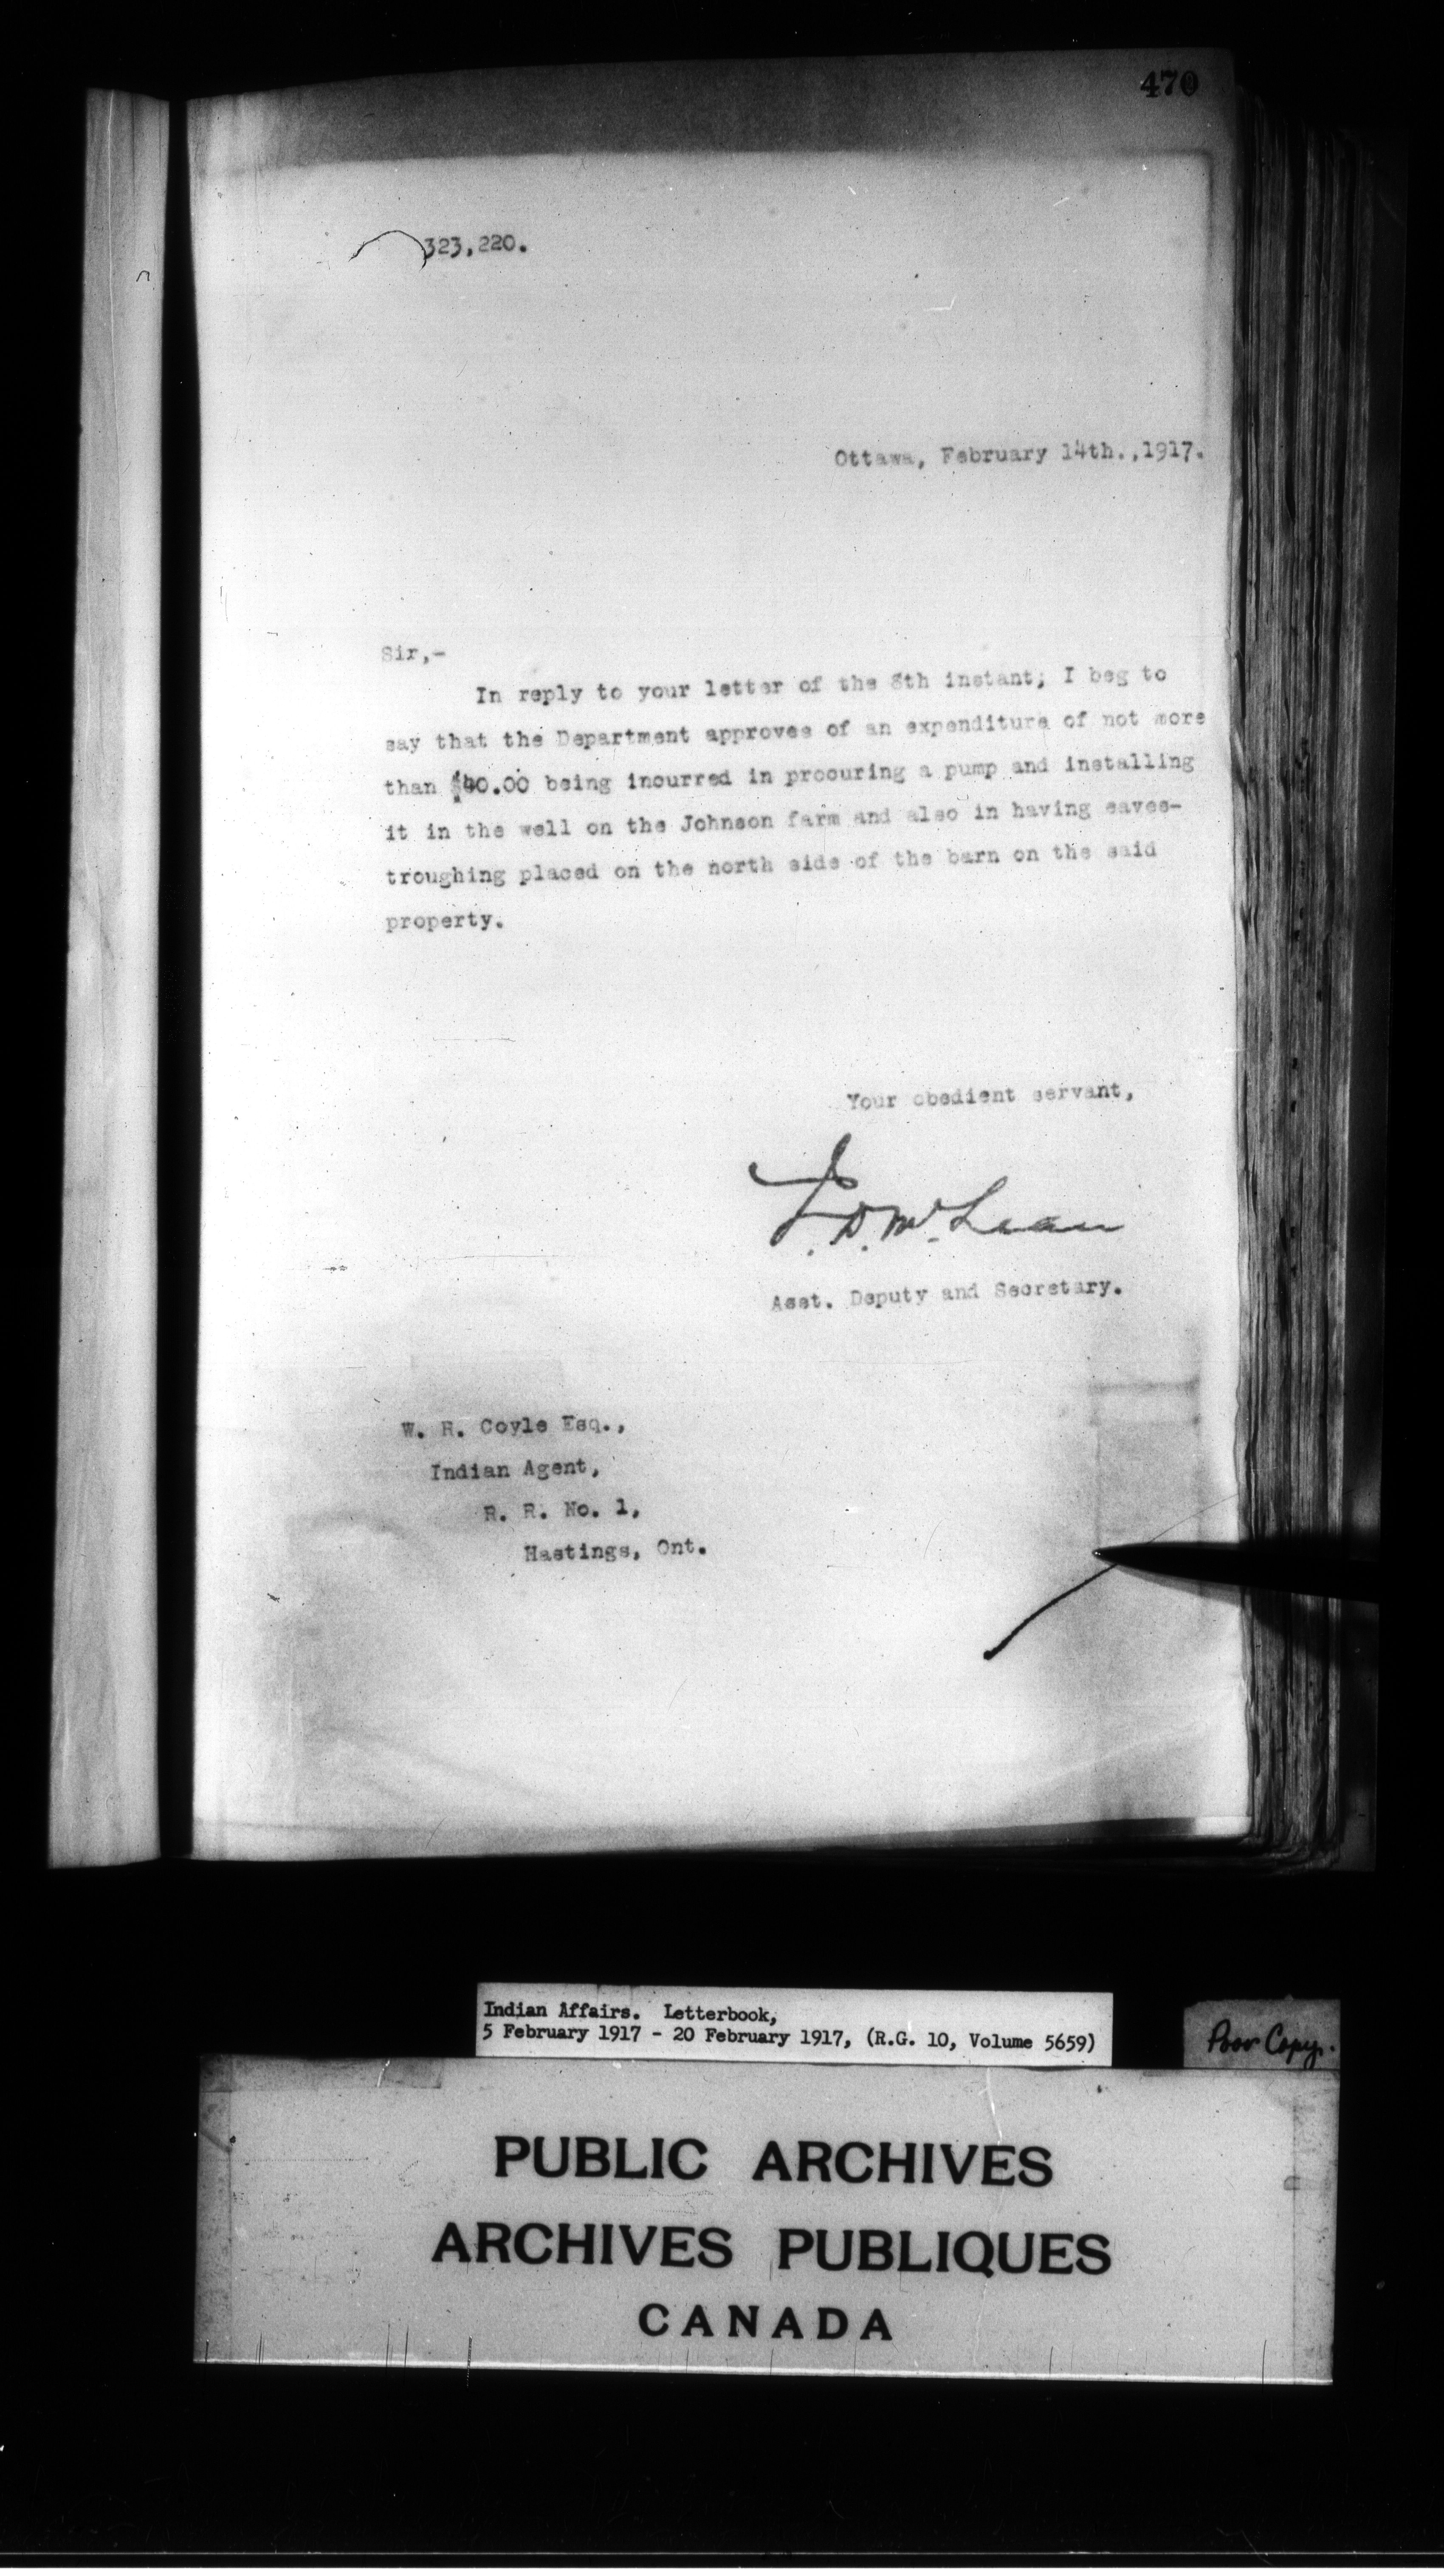 470
323,220.
Ottawa, February 14th.,1917.
Sir,-
In reply to your letter of the 8th instant; I beg to
say that the Department approves of an expenditure of not more
than $40.00 being incurred in procuring a pump and installing
it in the well on the Johnson farm and also in having eaves-
troughing placed on the north side of the barn on the said
property.
Your obedient servant,
J. D. McLean
Asst. Deputy and Secretary.
W. R. Coyle Esq.,
Indian Agent,
R. R. No. 1,
Hastings, Ont.
Indian Affairs. Letterbook,
5 February 1917 - 20 February 1917, (R.G. 10, Volume 5659)
Poor Copy.
PUBLIC ARCHIVES
ARCHIVES PUBLIQUES
CANADA